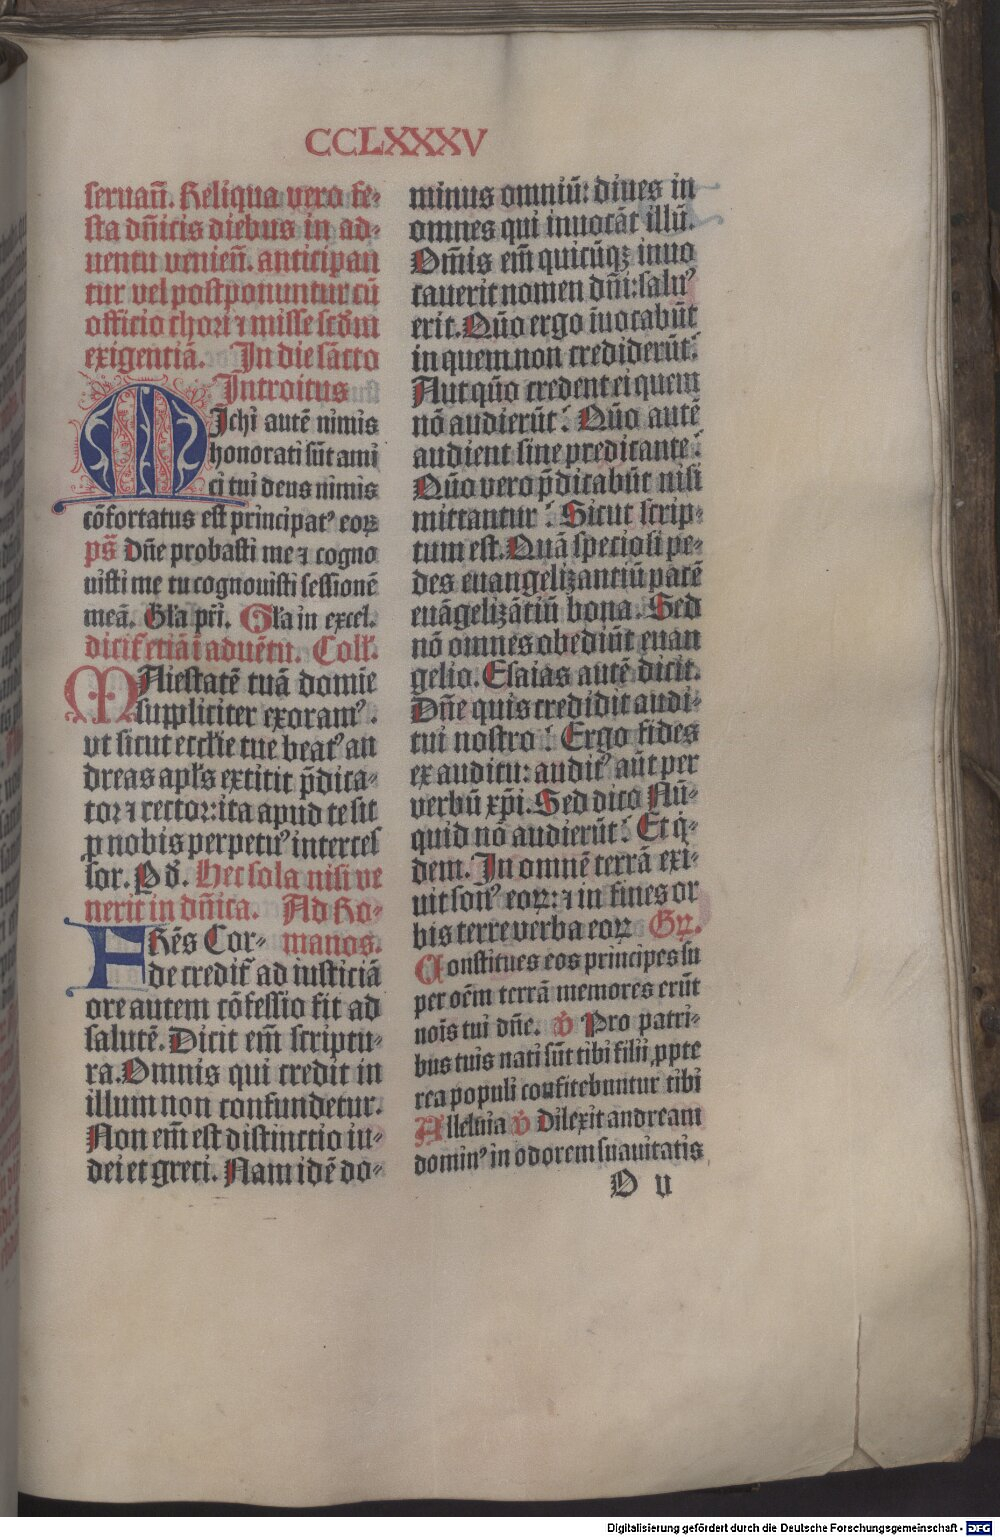 CCLXXXV
seruañ. Reliqua vero fe-
sta dñicis diebus in ad-
uentu venieñ. anticipan
tur vel postponuntur cũ
officio chori ⁊ misse scd̃m
exigentiã. In die sãcto
Introitus
MIchi autẽ nimis
honorati sũt ami
ci tui deus nimis
cõfortatus est principatꝰ eoꝝ
ps̃ Dñe probasti me ⁊ cogno
uisti me tu cognouisti sessionẽ
meã. Gl̃a pr̃i. Gl̃a in excel.
dicit̃ etiã ĩ aduẽtu. Coll̃.
MAiestatẽ tuã domĩe
suppliciter exoramꝰ.
vt sicut eccl̃ie tue beatꝰ an
dreas apl̃s extitit p̃dica-
tor ⁊ rector: ita apud te sit
ꝓ nobis perpetuꝰ interces
sor. P d̃. Hec sola nisi ve
nerit in dñica. Ad Ro-
FRẽs Cor- manos.
de credit̃ ad iusticiã
ore autem cõfessio fit ad
salutẽ. Dicit em̃ scriptu-
ra. Omnis qui credit in
illum non confundetur.
Non em̃ est distinctio iu-
dei et greci. Nam idẽ do-
minus omniũ: diues in
omnes qui inuocãt illũ.
Om̃is em̃ quicũqꝫ inuo
cauerit nomen dñi: saluꝰ
erit. Quõ ergo ĩuocabũt
in quem non crediderũt.
Aut quõ credent ei quem
nõ audierũt? Quõ autẽ
audient sine predicante?
Quõ vero p̃dicabũt nisi
mittantur? Sicut scrip-
tum est. Quã speciosi pe-
des euangelizantiũ pacẽ
euãgelizãtiũ bona. Sed
nõ omnes obediũt euan
gelio. Esaias autẽ dicit.
Dñe quis credidit audi-
tui nostro? Ergo fides
ex auditu: auditꝰ aũt per
verbũ xp̃i. Sed dico Nũ-
quid nõ audierũt? Et q̇-
dem. In omnẽ terrã exi-
uit sonꝰ eoꝝ: ⁊ in fines or
bis terre verba eoꝝ Gꝝ.
Constitues eos principes su
per oẽm terrã memores erũt
nois̃ tui dñe. v̇ Pro patri-
bus tuis nati sũt tibi filii ꝓpte
rea populi confitebuntur tibi
Alleluia v̇ Dilexit andream
dominꝰ in odorem suauitatis
D v
Digitalisierung gefördert durch die Deutsche Forschungsgemeinschaft - DFG